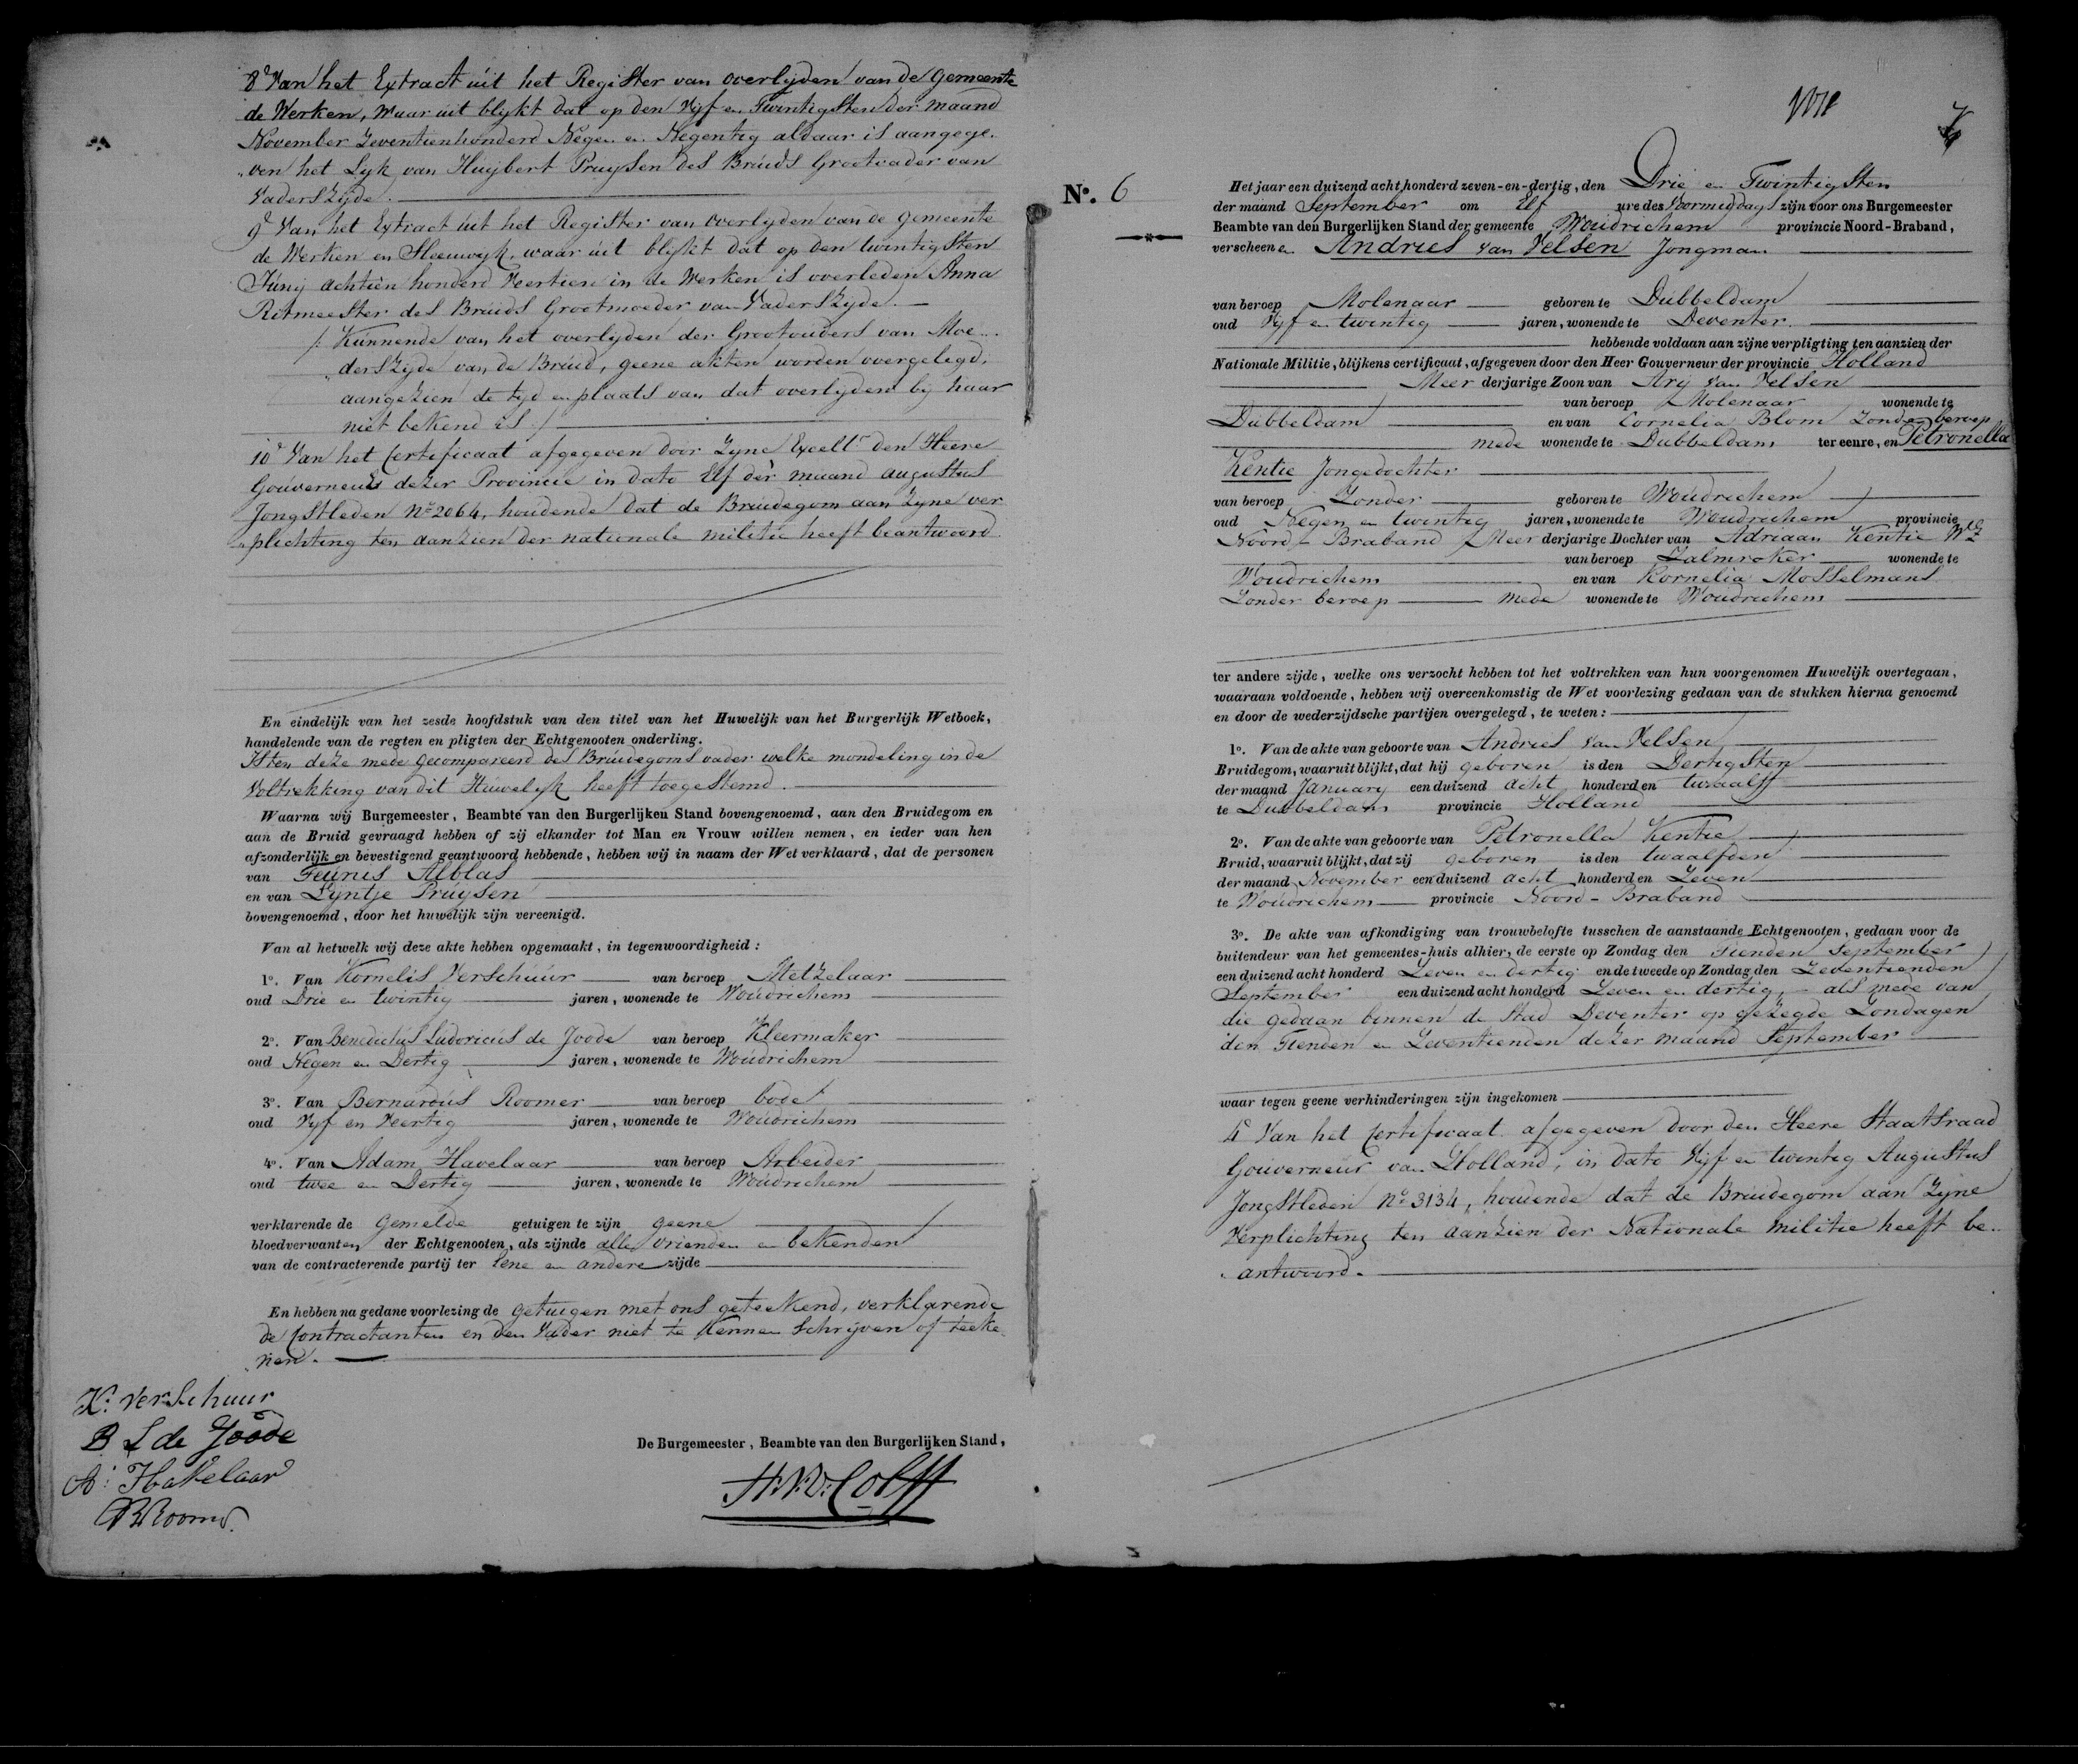 8e Van het Extract uit het Register van overlyden van de Gemeente
de Werken, waar uit blykt dat op den Vyf en Twintigsten der maand
November Zeventienhonderd Negen en Negentig aldaar is aangege-
"ven het Lyk van Huijbert Pruysen des Bruids Grootvader van
Vaderszyde.
9e Van het Extract uit het Register van overlyden van de gemeente
de Werken en Sleeuwyk, waar uit blykt dat op den twintigsten
Juny achtien honderd Veertien in de Werken is overleden Anna
Ritmeester des Bruids Grootmoeder van Vaderszyde.
/: Kunnende van het overlyden der Grootouders van Moe-
"derszyde van de Bruid, geene akten worden overgelegd,
aangezien de tyd en plaats van dat overlyden by haar
niet bekend is :/
10e Van het Certificaat afgegeven door Zyne Excellr den Heere
Gouverneur dezer Provincie in dato Elf der maand augustus
Jongstleden No 2064, houdende dat de Bruidegom aan Zyne ver
"plichting ten aanzien der nationale militie heeft beantwoord
En eindelijk van het zesde hoofdstuk van den titel van het Huwelijk van het Burgerlijk Wetboek,
handelende van de regten en pligten der Echtgenooten onderling.
Is ten deze mede gecompareerd des Bruidegoms vader welke mondeling in de
Voltrekking van dit Huwelyk heeft toegestemd.
Waarna wij Burgemeester, Beambte van den Burgerlijken Stand bovengenoemd, aan den Bruidegom en
aan de Bruid gevraagd hebben of zij elkander tot Man en Vrouw willen nemen, en ieder van hen
afzonderlijk en bevestigend geantwoord hebbende, hebben wij in naam der Wet verklaard, dat de personen
van Teunis Alblas
en van Lyntje Pruysen
bovengenoemd, door het huwelijk zijn vereenigd.
Van al hetwelk wij deze akte hebben opgemaakt, in tegenwoordigheid:
1o. Van Kornelis Verschuur van beroep Metzelaar
oud Drie en twintig jaren, wonende te Woudrichem
2o. Van Benedictus Ludovicus de Joode van beroep Kleermaker
oud Negen en Dertig jaren, wonende te Woudrichem
3o. Van Bernardus Roomer van beroep bode
oud Vyf en Veertig jaren, wonende te Woudrichem
4o. Van Adam Havelaar van beroep Arbeider
oud twee en Dertig jaren, wonende te Woudrichem
verklarende de Gemelde getuigen te zijn geene
bloedverwanten der Echtgenooten, als zijnde alle vrienden en bekenden
van de contracterende partij ter Eene en andere zijde
En hebben na gedane voorlezing de getuigen met ons geteekend, verklarende
de Contractanten en den Vader niet te kennen Schrijven of teeke
"nen.
K: verschuur
B L de Joode
A: Havelaar
B Roomer.
De Burgemeester, Beambte van den Burgerlijken Stand,
No. 6
7
Het jaar een duizend acht honderd zeven-en-dertig, den Drie en Twintigsten
der maand September om Elf ure des Voormiddags zijn voor ons Burgemeester
Beambte van den Burgerlijken Stand der gemeente Woudrichem provincie Noord-Braband,
verscheenen Andries van Velsen Jongman
van beroep Molenaar geboren te Dubbeldam
oud Vyf en twintig jaren, wonende te Deventer.
hebbende voldaan aan zijne verpligting ten aanzien der
Nationale Militie, blijkens certificaat, afgegeven door den Heer Gouverneur der provincie Holland
Meer derjarige Zoon van Ary van Velsen
van beroep Molenaar wonende te
Dubbeldam en van Cornelia Blom Zonder beroep
mede wonende te Dubbeldam ter eenre, en Petronella
Kentie Jongedochter
van beroep Zonder geboren te Woudrichem
oud Negen en twintig jaren, wonende te Woudrichem provincie
Noord-Braband Meer derjarige Dochter van Adriaan Kentie WZ
van beroep Zalmroker wonende te
Woudrichem en van Kornelia Mosselmans
Zonder beroep mede wonende te Woudrichem
ter andere zijde, welke ons verzocht hebben tot het voltrekken van hun voorgenomen Huwelijk overtegaan,
waaraan voldoende, hebben wij overeenkomstig de Wet voorlezing gedaan van de stukken hierna genoemd
en door de wederzijdsche partijen overgelegd, te weten:
1o. Van de akte van geboorte van Andries van Velsen
Bruidegom, waaruit blijkt, dat hij geboren is den Dertigsten
der maand January een duizend acht honderd en twaalf
te Dubbeldam provincie Holland
2o. Van de akte van geboorte van Petronella Kentie
Bruid, waaruit blijkt, dat zij geboren is den twaalfden
der maand November een duizend acht honderd en Zeven
te Woudrichem provincie Noord-Braband
3o. De akte van afkondiging van trouwbelofte tusschen de aanstaande Echtgenooten, gedaan voor de
buitendeur van het gemeentes-huis alhier, de eerste op Zondag den Tienden September
een duizend acht honderd Zeven en dertig en de tweede op Zondag den Zeventienden
September een duizend acht honderd Zeven en dertig, - als mede van
die gedaan binnen de Stad Deventer op gezegde Zondagen
den Tienden en Zeventienden dezer maand September
waar tegen geene verhinderingen zijn ingekomen
4e Van het Certificaat afgegeven door den Heere Staatsraad
Gouverneur van Holland, in dato Vyf en twintig Augustus
Jongstleden No 3134, houdende dat de Bruidegom aan Zyne
Verplichting ten aanzien der Nationale militie heeft be-
"antwoord.